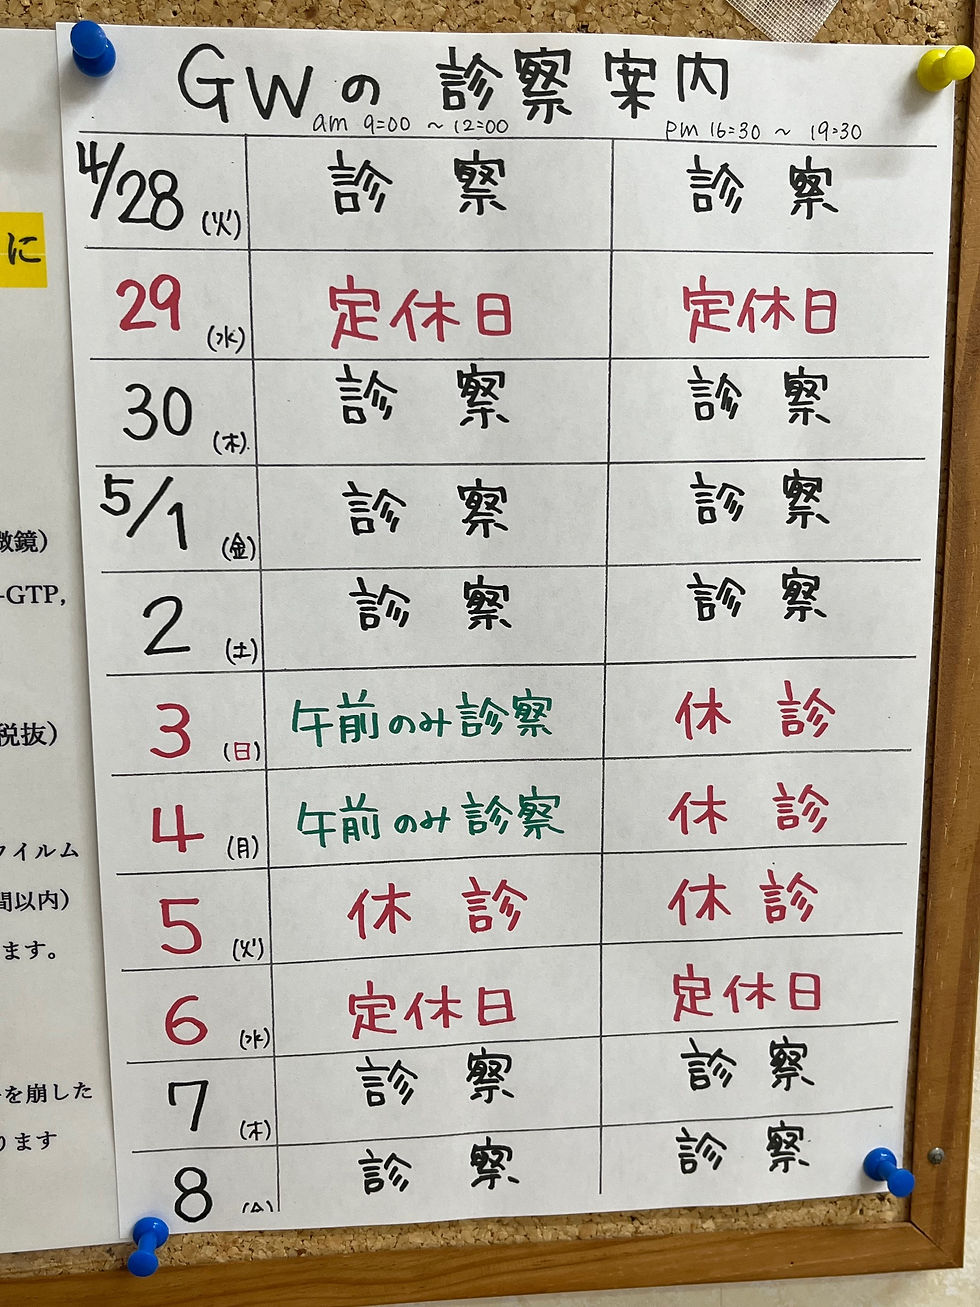 GWの 診察案内
am 9:00 ~ 12:00 pm 16:30 ~ 19:30
4/28 (火) 診 察 診 察
29 (水) 定休日 定休日
30 (木) 診 察 診 察
5/1 (金) 診 察 診 察
2 (土) 診 察 診 察
3 (日) 午前のみ診察 休 診
4 (月) 午前のみ診察 休 診
5 (火) 休 診 休 診
6 (水) 定休日 定休日
7 (木) 診 察 診 察
8 (金) 診 察 診 察
に
微鏡)
-GTP,
税抜)
フイルム
間以内)
ます。
を崩した
ります